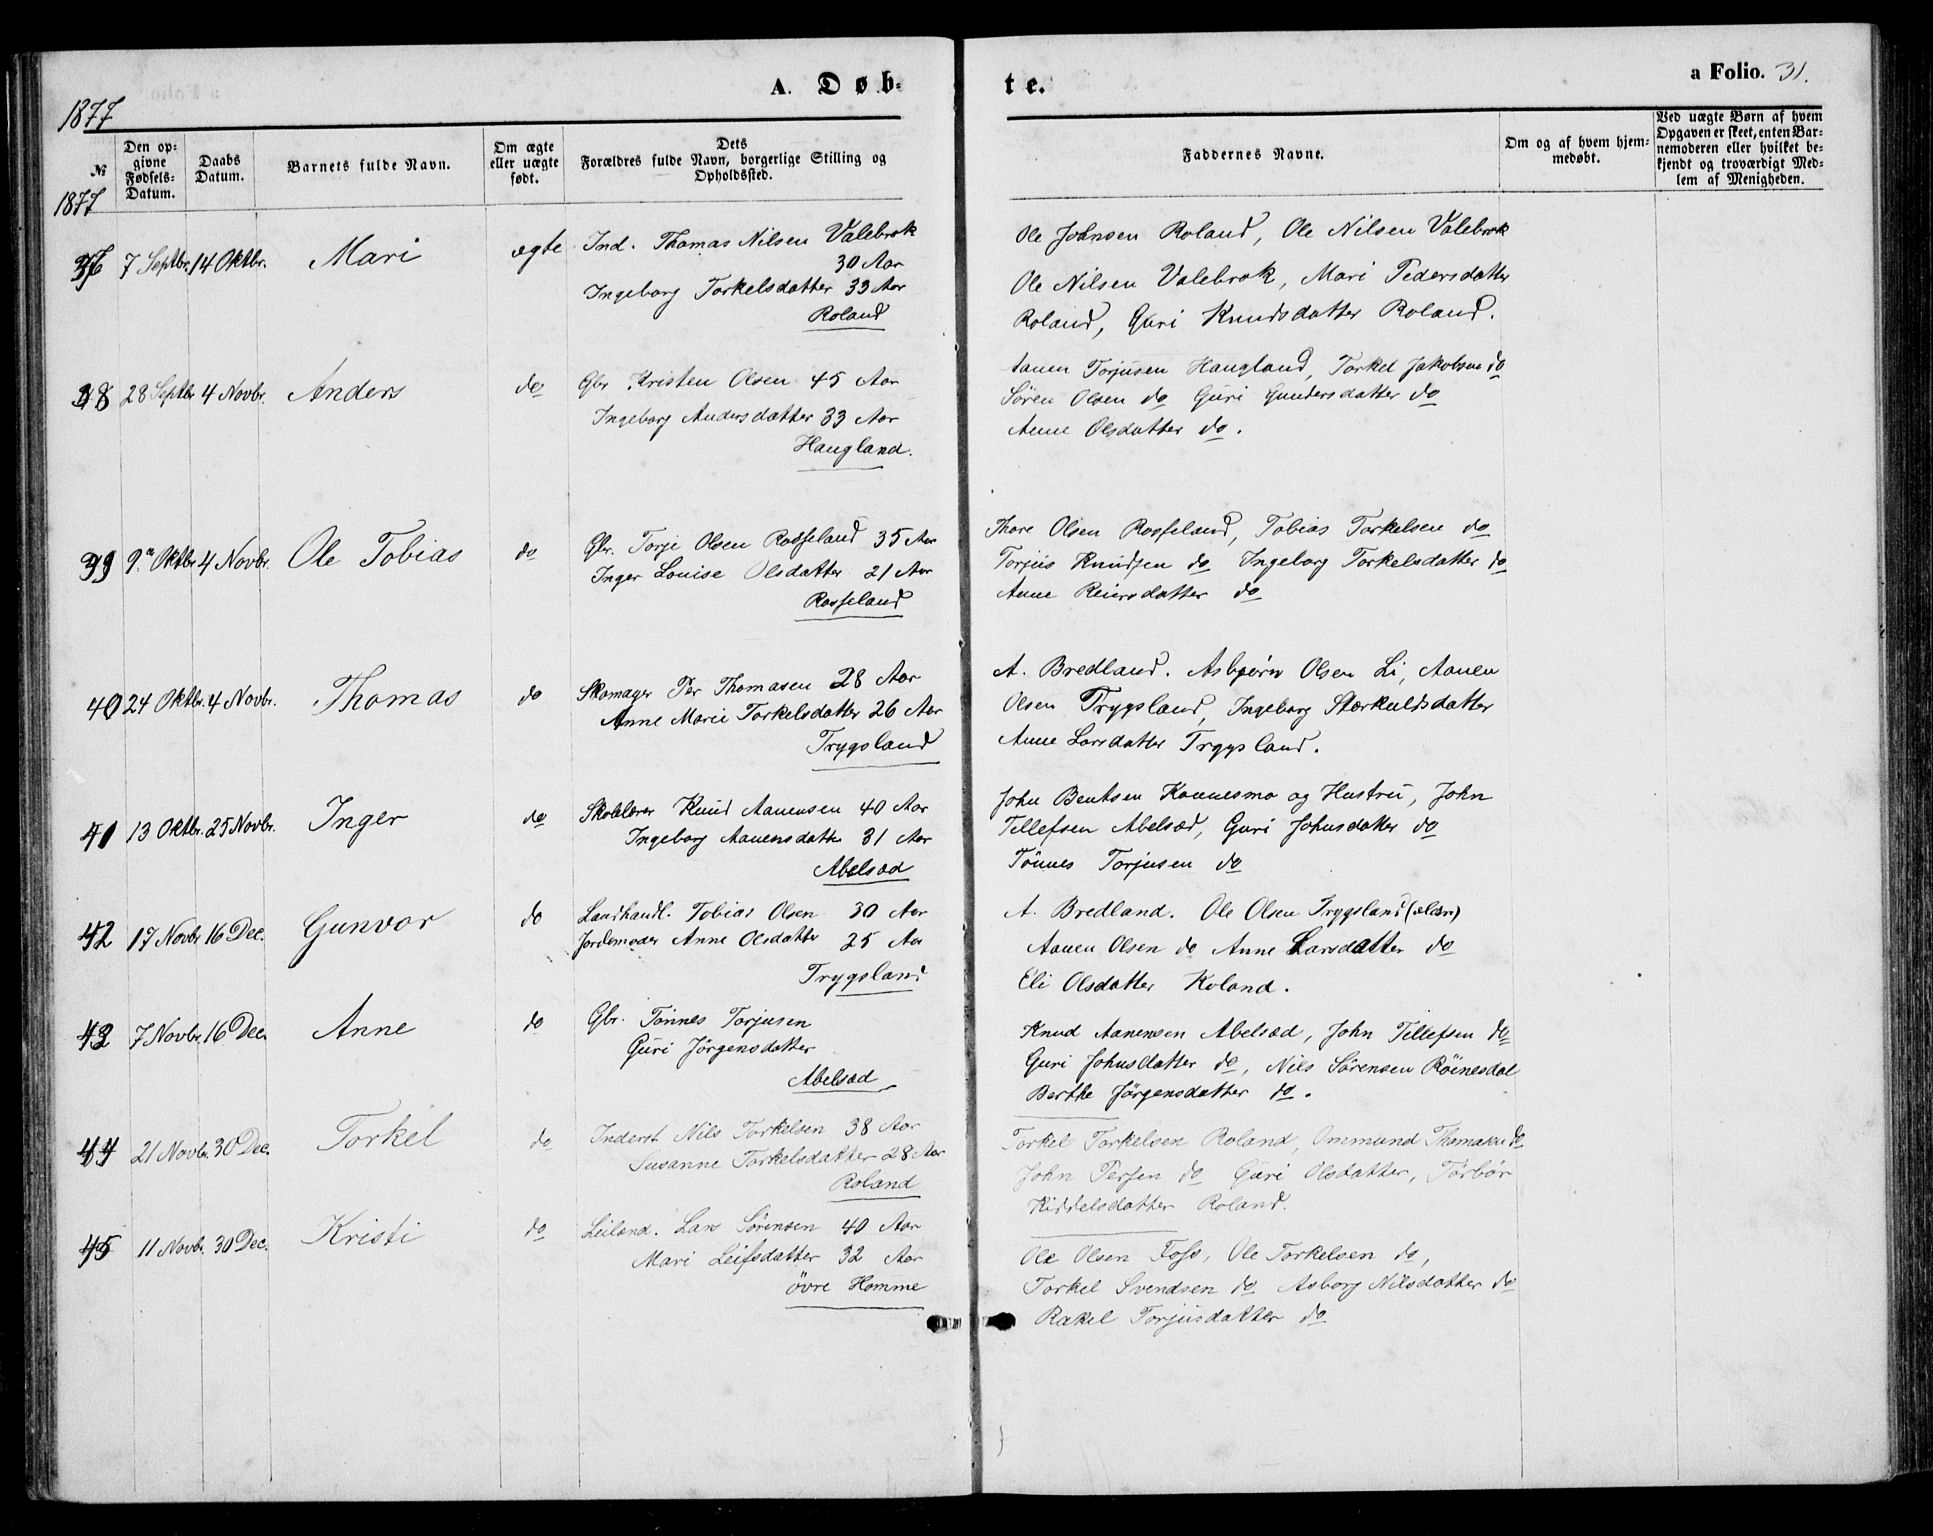 A. Døb-
te.
a Folio. 31.
1877
№
Den op-
givne
Fødsels-
Datum.
Daabs
Datum.
Barnets fulde Navn.
Om ægte
eller uægte
født.
Dets
Forældres fulde Navn, borgerlige Stilling og
Opholdssted.
Faddernes Navne.
Om og af hvem hjem-
medøbt.
Ved uægte Børn af hvem
Opgaven er skeet, enten Bar-
nemoderen eller hvilket be-
kjendt og troværdigt Med-
lem af Menigheden.
1877
37 7 Septbr. 14 Oktbr. Mari ægte Ind. Thomas Nilsen Valebrok
30 Aar
Ingeborg Torkelsdatter 33 Aar
Roland
Ole Johnsen Roland, Ole Nilsen Valebrok
Ole Nilsen Valebrok, Mari Pedersdatter
Roland, Guri Knudsdatter Roland.
38 28 Septbr. 4 Novbr. Anders do Gbr. Kristen Olsen 45 Aar
Ingeborg Andersdatter 33 Aar
Haugland.
Aanen Torjusen Haugland, Torkel Jakobsen do
Sören Olsen do Guri Gundersdatter do
Anne Olsdatter do.
39 9de Oktbr. 4 Novbr. Ole Tobias do Gbr. Torje Olsen Rosseland 35 Aar
Inger Louise Olsdatter 21 Aar
Rosseland
Thore Olsen Rosseland, Tobias Torkelsen do
Torjus Knudsen do Ingeborg Torkelsdatter do
Anne Reiersdatter do
40 24 Oktbr. 4 Novbr. Thomas do Skomager Per Thomasen 28 Aar
Anne Marie Torkelsdatter 26 Aar
Trygsland
A. Bredland. Asbjørn Olsen Li, Aanen
Olsen Trygsland, Ingeborg Stærkuldsdatter
Anne Larsdatter Trygsland.
41 13 Oktbr. 25 Novbr. Inger do Skolelærer Knud Aanensen 40 Aar
Ingeborg Aanensdatter 31 Aar
Abelsæd
John Bentsen Konnesmo og Hustru, John
Tellefsen Abelsæd, Guri Johnsdatter do
Tönnes Torjusen do
42 17 Novbr. 16 Dec. Gunvor do Landhandl. Tobias Olsen 30 Aar
Jordemoder Anne Olsdatter 25 Aar
Trygsland
A. Bredland. Ole Olsen Trygsland (ældre)
Aanen Olsen do Anne Larsdatter do
Eli Olsdatter Roland.
43 7 Novbr. 16 Dec. Anne do Gbr. Tönnes Torjusen
Guri Jörgensdatter
Abelsæd
Knud Aanensen Abelsæd, John Tellefsen do
Guri Johnsdatter do, Nils Sörensen Röinesdal
Berthe Jörgensdatter do.
44 21 Novbr. 30 Dec. Torkel do Inderst Nils Torkelsen 38 Aar
Susanne Torkelsdatter 28 Aar
Roland
Torkel Torkelsen Roland, Ommund Thomasen do
John Persen do Guri Olsdatter, Törbör
Kiddelsdatter Roland.
45 11 Novbr. 30 Dec. Kristi do Leilænd. Lars Sörensen 40 Aar
Mari Leifsdatter 32 Aar
övre Homme
Ole Olsen Foss, Ole Torkelsen do,
Torkel Svendsen do Asborg Nilsdatter do
Rakel Torjusdatter do